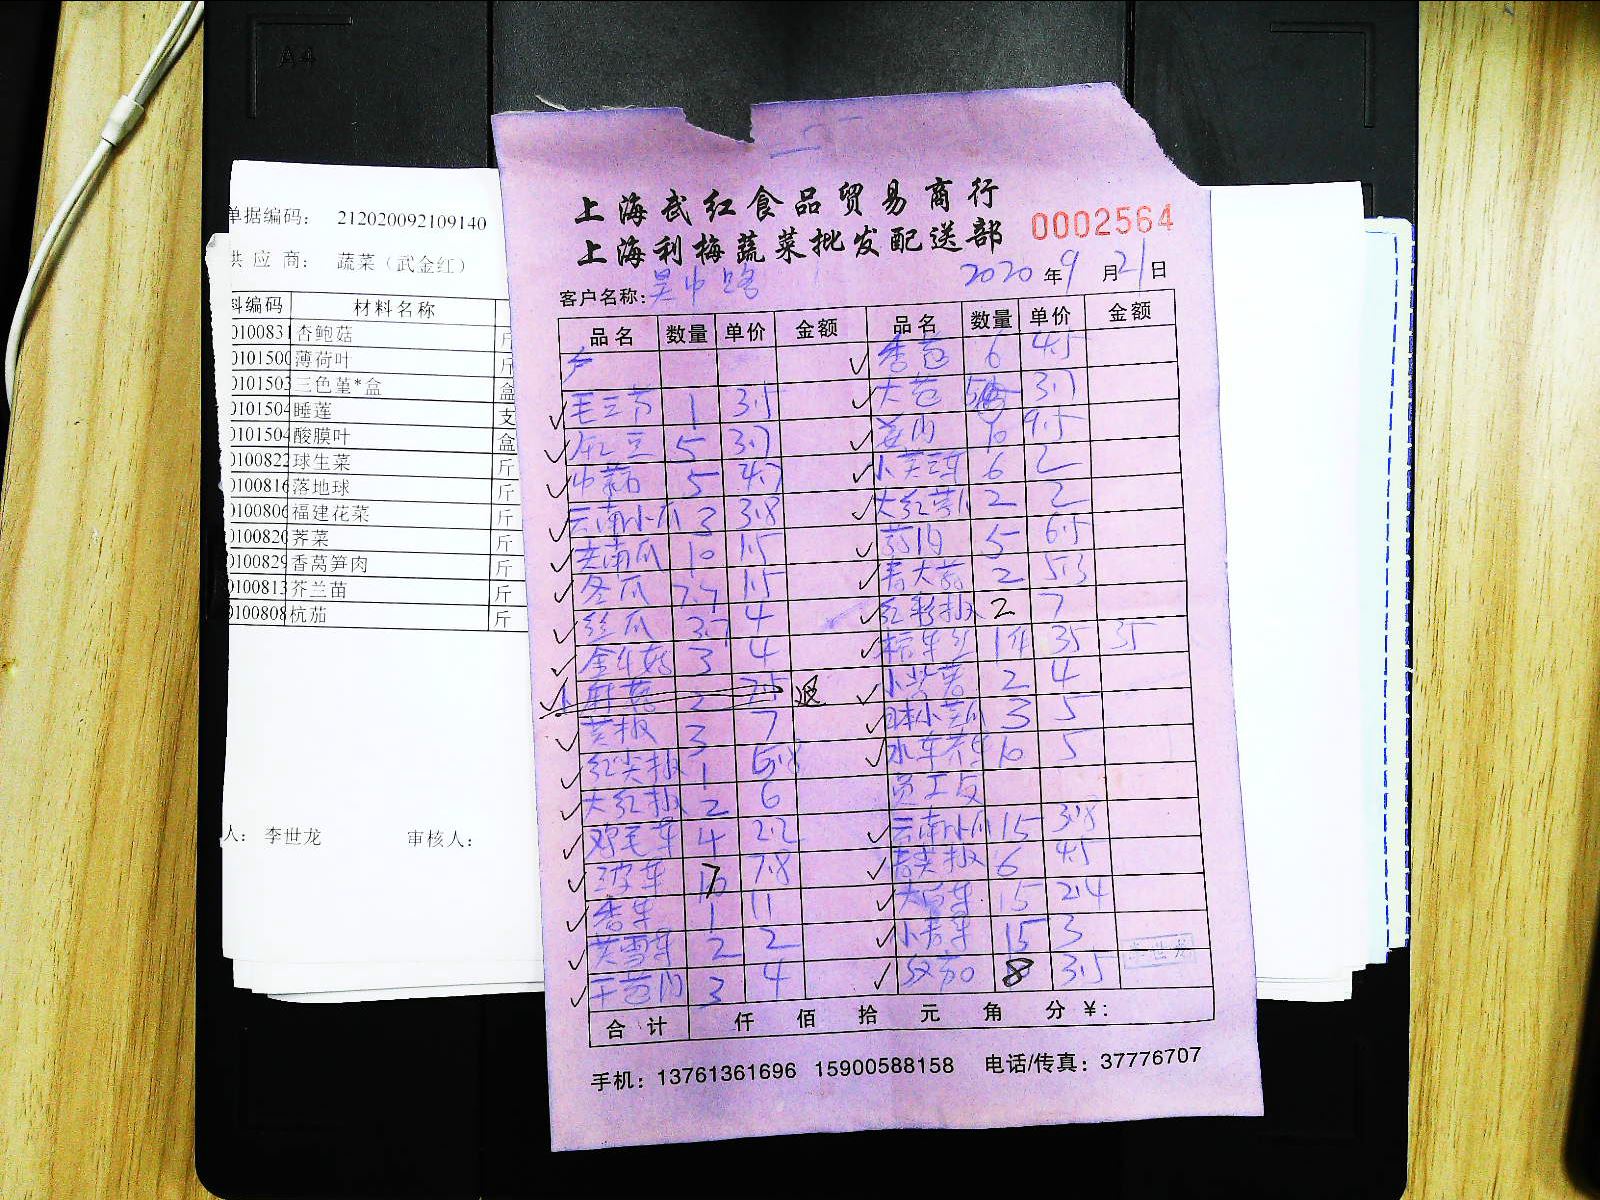 单据编码： 212020092109140
供 应 商： 蔬菜（武金红）
料编码 材料名称
0100831 杏鲍菇 斤
0101500 薄荷叶 斤
0101503 三色堇*盒 盒
0101504 睡莲 支
0101504 酸膜叶 盒
0100822 球生菜 斤
0100816 落地球 斤
0100806 福建花菜 斤
0100820 荠菜 斤
0100829 香莴笋肉 斤
0100813 芥兰苗 斤
0100808 杭茄 斤
人： 李世龙 审核人：
上海武红食品贸易商行
上海利梅蔬菜批发配送部
0002564
客户名称： 吴中路 2020 年 9 月 21 日
品名 数量 单价 金额 品名 数量 单价 金额
香菇 6 4.5
毛豆节 1 3.5 大葱 3.7
5 3.7 姜肉 10 9.5
中藕 5 4.7 6 2
云南小瓜 3 3.8 2 2
老南瓜 10 1.5 5 6.5
冬瓜 7.7 1.5 青大蒜 2 5.3
丝瓜 3.7 4 红彩椒 2 7
金针菇 3 4 1件 35 35
2 7.5 退 小紫薯 2 4
黄椒 3 7 日本小黄瓜 3 5
红尖椒 1 5.8 10 5
大红椒 2 6 员工反
鸡毛菜 4 2.2 云南小瓜 15 3.8
7 7.8 青尖椒 6 4.5
香菜 1 11 大白菜 15 2.4
2 2 小青菜 15 3
3 4 8 3.5
李世龙
合计 仟 佰 拾 元 角 分 ¥：
手机：13761361696 15900588158 电话/传真：37776707